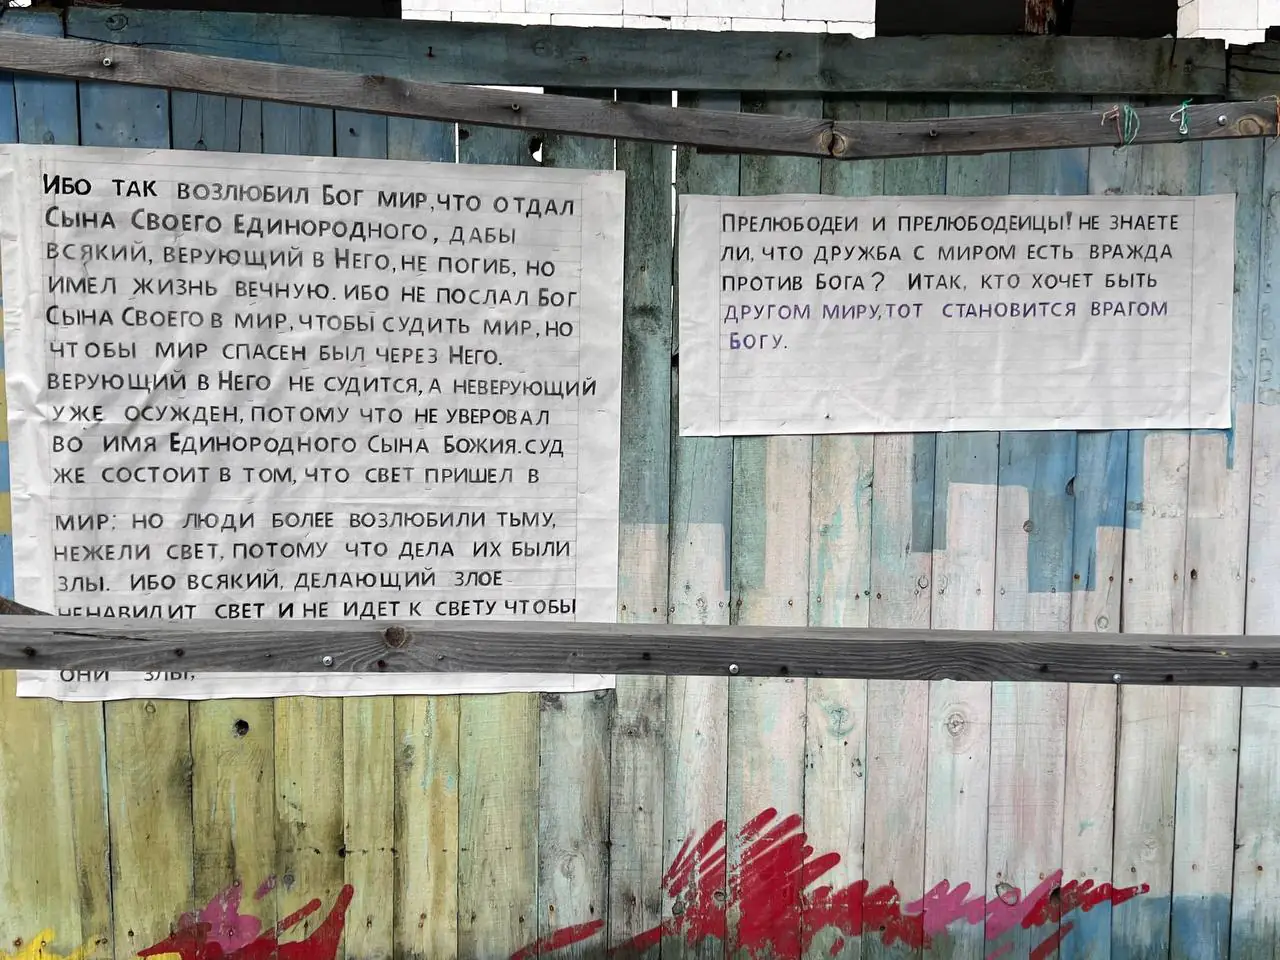 Ибо так возлюбил Бог мир, что отдал
Сына Своего Единородного, дабы
всякий, верующий в Него, не погиб, но
имел жизнь вечную. ибо не послал Бог
Сына Своего в мир, чтобы судить мир, но
чтобы мир спасен был через Него.
верующий в Него не судится, а неверующий
уже осужден, потому что не уверовал
во имя Единородного Сына Божия. суд
же состоит в том, что свет пришел в
мир; но люди более возлюбили тьму,
нежели свет, потому что дела их были
злы. ибо всякий, делающий злое
ненавидит свет и не идет к свету чтобы
они злы,
Прелюбодеи и прелюбодеицы! не знаете
ли, что дружба с миром есть вражда
против Бога? Итак, кто хочет быть
другом миру, тот становится врагом
Богу.